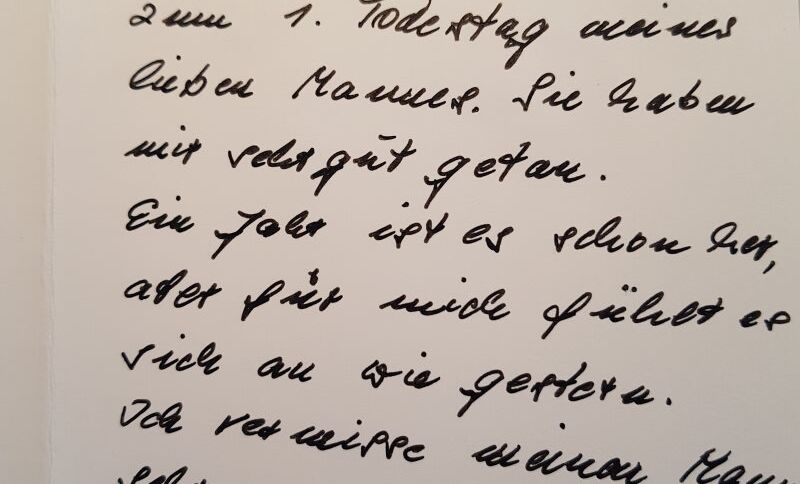 zum 1. Todestag meines
lieben Mannes. Sie haben
mir sehr gut getan.
Ein Jahr ist es schon her,
aber für mich fühlt es
sich an wie gestern.
Ich vermisse meinen Mann
sehr